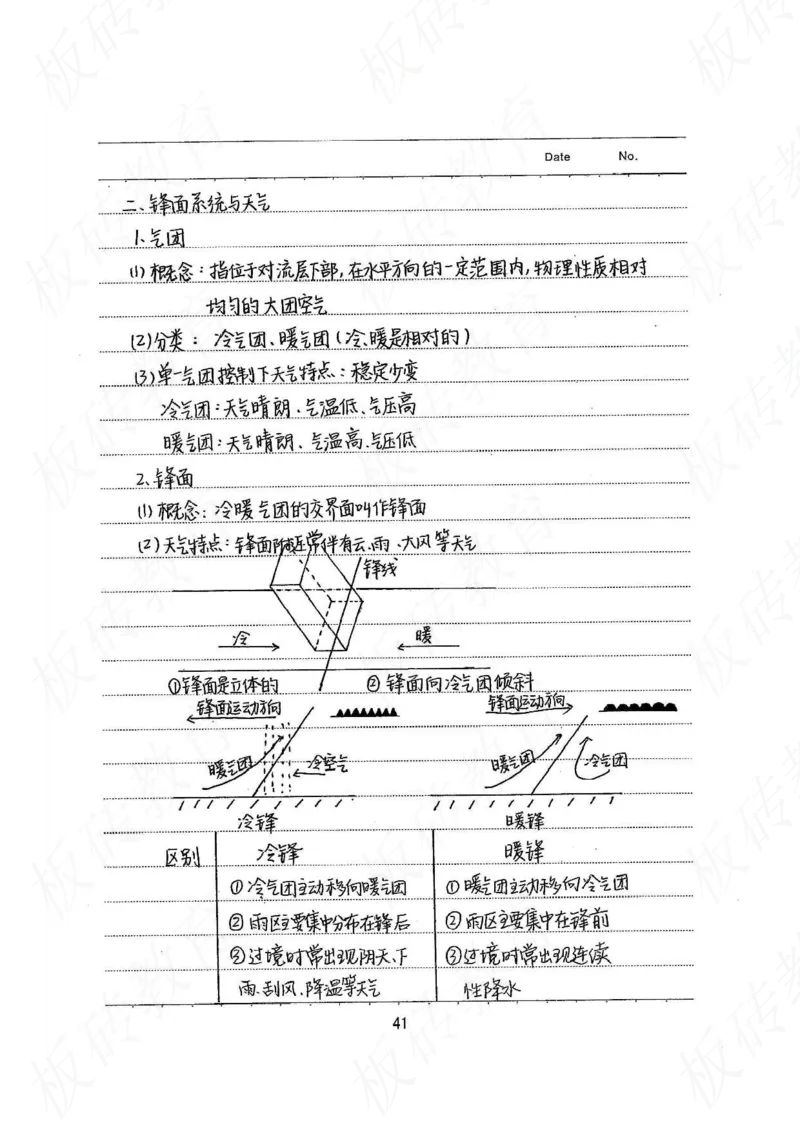 Date No.
二、锋面系统与天气
1、气团
(1)概念：指位于对流层下部,在水平方向的一定范围内,物理性质相对
均匀的大团空气
(2)分类：冷气团、暖气团(冷、暖是相对的)
(3)单一气团控制下天气特点：稳定少变
冷气团：天气晴朗、气温低、气压高
暖气团：天气晴朗、气温高、气压低
2、锋面
(1)概念：冷暖气团的交界面叫作锋面
(2)天气特点：锋面附近常伴有云、雨、大风等天气
锋线
冷 暖
①锋面是立体的 ②锋面向冷气团倾斜
锋面运动方向 锋面运动方向
暖气团 冷空气 暖气团 冷气团
冷锋 暖锋
区别 冷锋 暖锋
①冷气团主动移向暖气团 ①暖气团主动移向冷气团
②雨区主要集中分布在锋后 ②雨区主要集中在锋前
③过境时常出现阴天、下 ③过境时常出现连续
雨、刮风、降温等天气 性降水
41
板砖教育